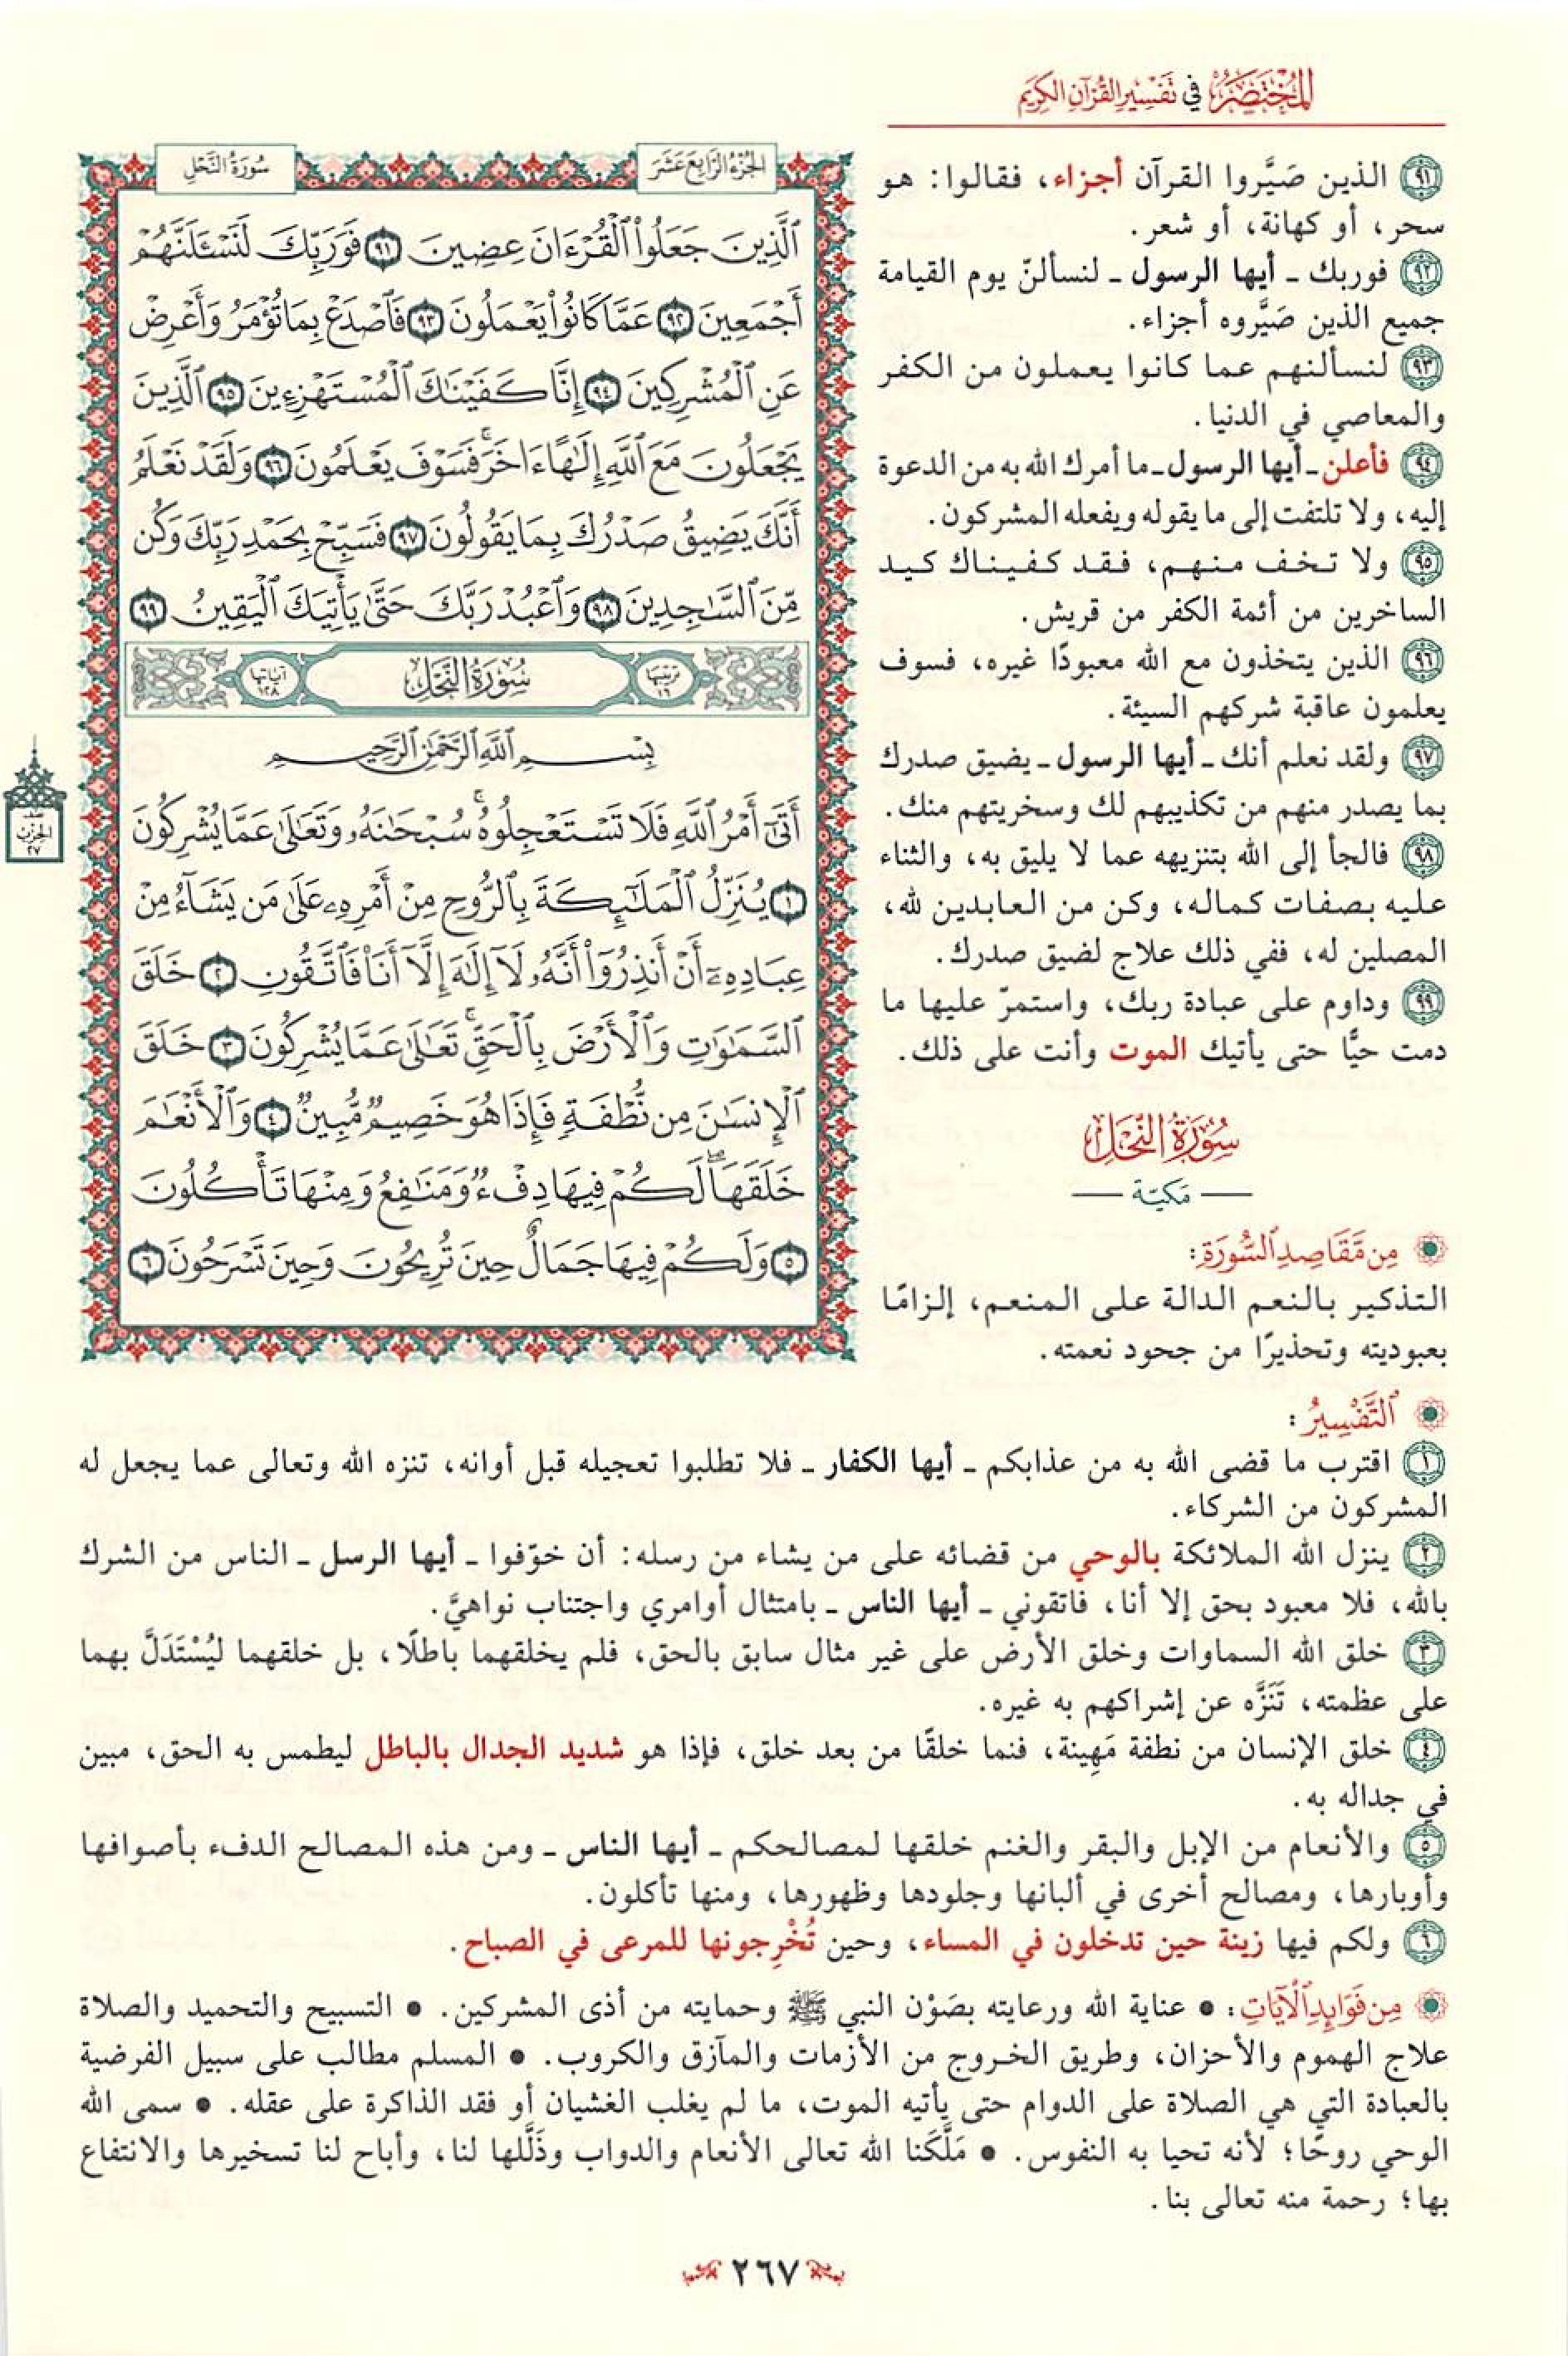 المختصر في تفسير القرآن الكريم
الجزء الرابع عشر
سورة النحل
الَّذِينَ جَعَلُوا۟ الْقُرْءَانَ عِضِينَ ٩١ فَوَرَبِّكَ لَنَسْـَٔلَنَّهُمْ
أَجْمَعِينَ ٩٢ عَمَّا كَانُوا۟ يَعْمَلُونَ ٩٣ فَاصْدَعْ بِمَا تُؤْمَرُ وَأَعْرِضْ
عَنِ الْمُشْرِكِينَ ٩٤ إِنَّا كَفَيْنَٰكَ الْمُسْتَهْزِءِينَ ٩٥ الَّذِينَ
يَجْعَلُونَ مَعَ اللَّهِ إِلَٰهًا ءَاخَرَ ۚ فَسَوْفَ يَعْلَمُونَ ٩٦ وَلَقَدْ نَعْلَمُ
أَنَّكَ يَضِيقُ صَدْرُكَ بِمَا يَقُولُونَ ٩٧ فَسَبِّحْ بِحَمْدِ رَبِّكَ وَكُن
مِّنَ السَّٰجِدِينَ ٩٨ وَاعْبُدْ رَبَّكَ حَتَّىٰ يَأْتِيَكَ الْيَقِينُ ٩٩
ترتيبها ١٦ سورة النحل آياتها ١٢٨
بِسْمِ اللَّهِ الرَّحْمَٰنِ الرَّحِيمِ
أَتَىٰٓ أَمْرُ اللَّهِ فَلَا تَسْتَعْجِلُوهُ ۚ سُبْحَٰنَهُۥ وَتَعَٰلَىٰ عَمَّا يُشْرِكُونَ
١ يُنَزِّلُ الْمَلَٰٓئِكَةَ بِالرُّوحِ مِنْ أَمْرِهِۦ عَلَىٰ مَن يَشَآءُ مِنْ
عِبَادِهِۦٓ أَنْ أَنذِرُوٓا۟ أَنَّهُۥ لَآ إِلَٰهَ إِلَّآ أَنَا۠ فَاتَّقُونِ ٢ خَلَقَ
السَّمَٰوَٰتِ وَالْأَرْضَ بِالْحَقِّ ۚ تَعَٰلَىٰ عَمَّا يُشْرِكُونَ ٣ خَلَقَ
الْإِنسَٰنَ مِن نُّطْفَةٍ فَإِذَا هُوَ خَصِيمٌ مُّبِينٌ ٤ وَالْأَنْعَٰمَ
خَلَقَهَا ۖ لَكُمْ فِيهَا دِفْءٌ وَمَنَٰفِعُ وَمِنْهَا تَأْكُلُونَ
٥ وَلَكُمْ فِيهَا جَمَالٌ حِينَ تُرِيحُونَ وَحِينَ تَسْرَحُونَ ٦
نصف الحزب ٢٧
٩١ الذين صَيَّروا القرآن أجزاء، فقالوا: هو
سحر، أو كهانة، أو شعر.
٩٢ فوربك ـ أيها الرسول ـ لنسألنّ يوم القيامة
جميع الذين صَيَّروه أجزاء.
٩٣ لنسألنهم عما كانوا يعملون من الكفر
والمعاصي في الدنيا.
٩٤ فأعلن ـ أيها الرسول ـ ما أمرك الله به من الدعوة
إليه، ولا تلتفت إلى ما يقوله ويفعله المشركون.
٩٥ ولا تخف منهم، فقد كفيناك كيد
الساخرين من أئمة الكفر من قريش.
٩٦ الذين يتخذون مع الله معبودًا غيره، فسوف
يعلمون عاقبة شركهم السيئة.
٩٧ ولقد نعلم أنك ـ أيها الرسول ـ يضيق صدرك
بما يصدر منهم من تكذيبهم لك وسخريتهم منك.
٩٨ فالجأ إلى الله بتنزيهه عما لا يليق به، والثناء
عليه بصفات كماله، وكن من العابدين لله،
المصلين له، ففي ذلك علاج لضيق صدرك.
٩٩ وداوم على عبادة ربك، واستمرّ عليها ما
دمت حيًّا حتى يأتيك الموت وأنت على ذلك.
سورة النحل
— مكيّة —
من مقاصد السورة:
التذكير بالنعم الدالة على المنعم، إلزامًا
بعبوديته وتحذيرًا من جحود نعمته.
التفسير:
١ اقترب ما قضى الله به من عذابكم ـ أيها الكفار ـ فلا تطلبوا تعجيله قبل أوانه، تنزه الله وتعالى عما يجعل له
المشركون من الشركاء.
٢ ينزل الله الملائكة بالوحي من قضائه على من يشاء من رسله: أن خوّفوا ـ أيها الرسل ـ الناس من الشرك
بالله، فلا معبود بحق إلا أنا، فاتقوني ـ أيها الناس ـ بامتثال أوامري واجتناب نواهيَّ.
٣ خلق الله السماوات وخلق الأرض على غير مثال سابق بالحق، فلم يخلقهما باطلًا، بل خلقهما ليُسْتَدَلَّ بهما
على عظمته، تَنَزَّه عن إشراكهم به غيره.
٤ خلق الإنسان من نطفة مَهِينة، فنما خلقًا من بعد خلق، فإذا هو شديد الجدال بالباطل ليطمس به الحق، مبين
في جداله به.
٥ والأنعام من الإبل والبقر والغنم خلقها لمصالحكم ـ أيها الناس ـ ومن هذه المصالح الدفء بأصوافها
وأوبارها، ومصالح أخرى في ألبانها وجلودها وظهورها، ومنها تأكلون.
٦ ولكم فيها زينة حين تدخلون في المساء، وحين تُخْرِجونها للمرعى في الصباح.
من فوائد الآيات: • عناية الله ورعايته بصَوْن النبي ﷺ وحمايته من أذى المشركين. • التسبيح والتحميد والصلاة
علاج الهموم والأحزان، وطريق الخروج من الأزمات والمآزق والكروب. • المسلم مطالب على سبيل الفرضية
بالعبادة التي هي الصلاة على الدوام حتى يأتيه الموت، ما لم يغلب الغشيان أو فقد الذاكرة على عقله. • سمى الله
الوحي روحًا؛ لأنه تحيا به النفوس. • مَلَّكَنا الله تعالى الأنعام والدواب وذَلَّلها لنا، وأباح لنا تسخيرها والانتفاع
بها؛ رحمة منه تعالى بنا.
٢٦٧